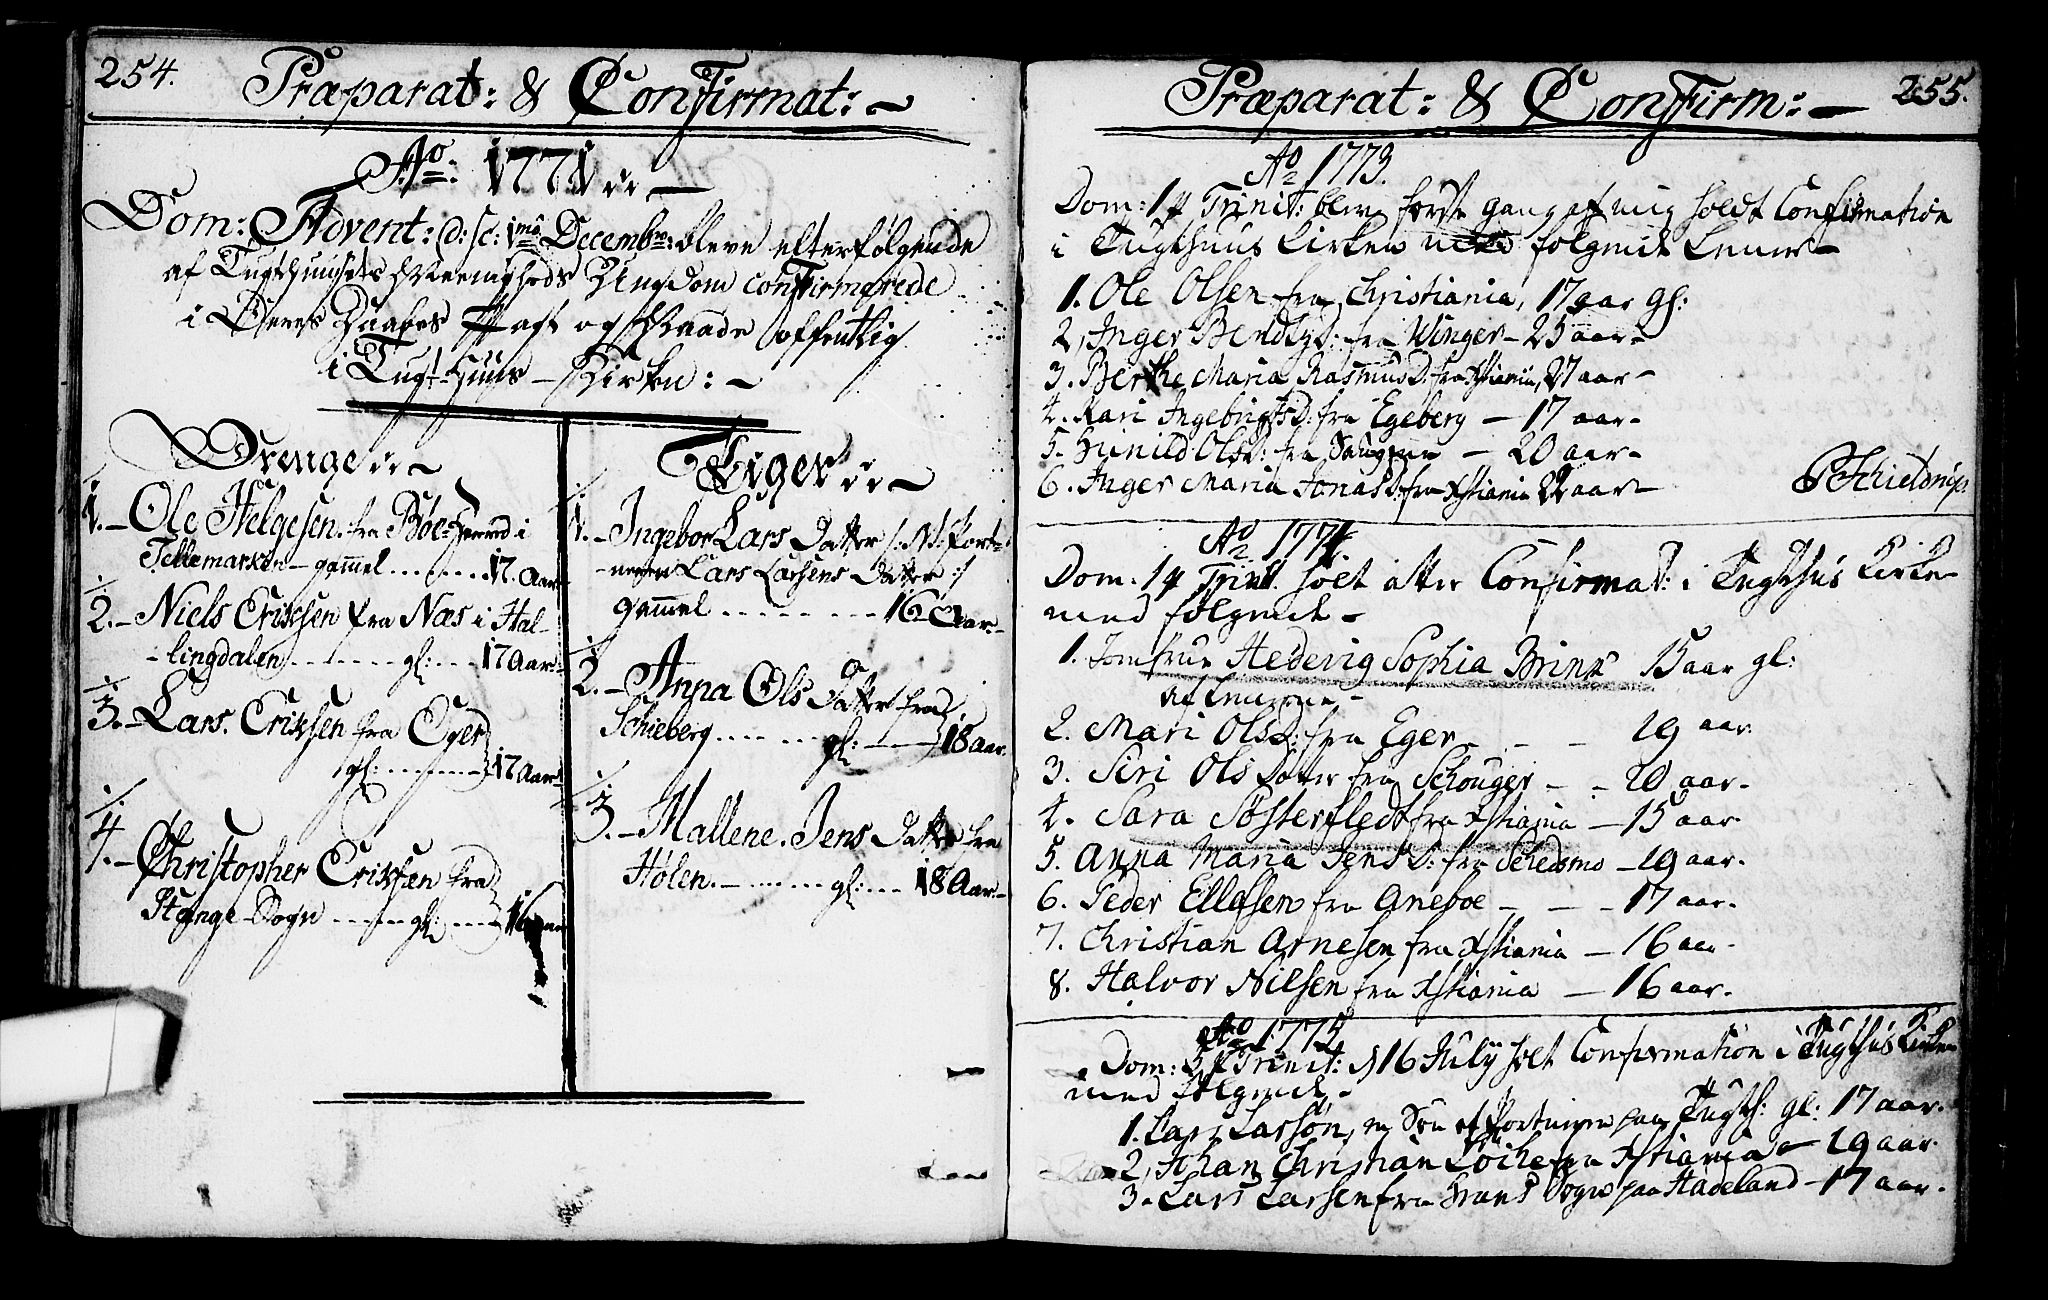 254.
Præparat: & Confirmat:
Ao: 1771
Dom: Advent: d: sc: 1mo Decembr: bleve efterfølgende
af Tugthuusets Meenigheds Ungdom confirmerede
i Deres Daabes Pagt og Naade offentlig
i Tugt-Huus-Kirken:
Drenge
1. Ole Helgesen fra Bøe-Herred i
Tellemarken - gammel ........ 17. Aar
2. Niels Eriksen fra Næs i Hal-
lingdalen ........ gl: ... 17 Aar
3. Lars Eriksen fra Eger
gl: ........ 17 Aar
4. Christopher Eriksen fra
Stange-Sogn ...... gl: ... 16 Aar
Piger
1. Ingebor Lars Datter /: NB: Port-
neren Lars Larsens Datter :/
gammel ........ 16 Aar
2. Anna Ols Datter fra
Schieberg ...... gl: ... 18 Aar
3. Mallene Jens Datter fra
Hølen. ...... gl: ... 18 Aar
255.
Præparat: & Confirm:
Ao 1773.
Dom: 14 Trinit: blev første gang af mig holdt Confirmation
i Tugthuus Kirken med følgende
1. Ole Olsen fra Christiania, 17 aar gl:
2, Inger Bendtzd: fra Winger - 25 aar
3. Berthe Maria RasmusD: fra Xstiania, 27 aar
4. Kari IngebrigtsD: fra Egeberg - 17 aar
5. Gunild OlsD: fra - 20 aar
6. Inger Maria JonasD: fra Xstiania 22 aar
Ao 1774.
Dom: 14 Trinit. holt atter Confirmat: i Tugthus Kirken
med følgende
1. Jomfrue Hedevig Sophia Brink 15 aar gl:
2. Mari OlsD: fra Eger - - - 19 aar
3. Siri Ols Datter fra Schouger - - 20 aar
4. Sara Søsterfledt fra Xstiania - 15 aar
5. Anna Maria JensD: fra Schedsmo - 19 aar
6. Peder Ellefsen fra Aneboe - - - 17 aar
7. Christian Arnesen fra Xstiania - 16 aar
8. Halvor Nilsen fra Xstiania - 16 aar
Ao 1775
Dom: 5 p Trinit: d 16 July holt Confirmation i Tugthus Kirken
med følgende
1. Lars Larsøn, en Søn af Portneren paa Tugth: gl: 17 aar
2, Johan Christian fra Xstiania - 19 aar
3. Lars Larsen fra Grans Sogn paa Hadeland - 17 aar